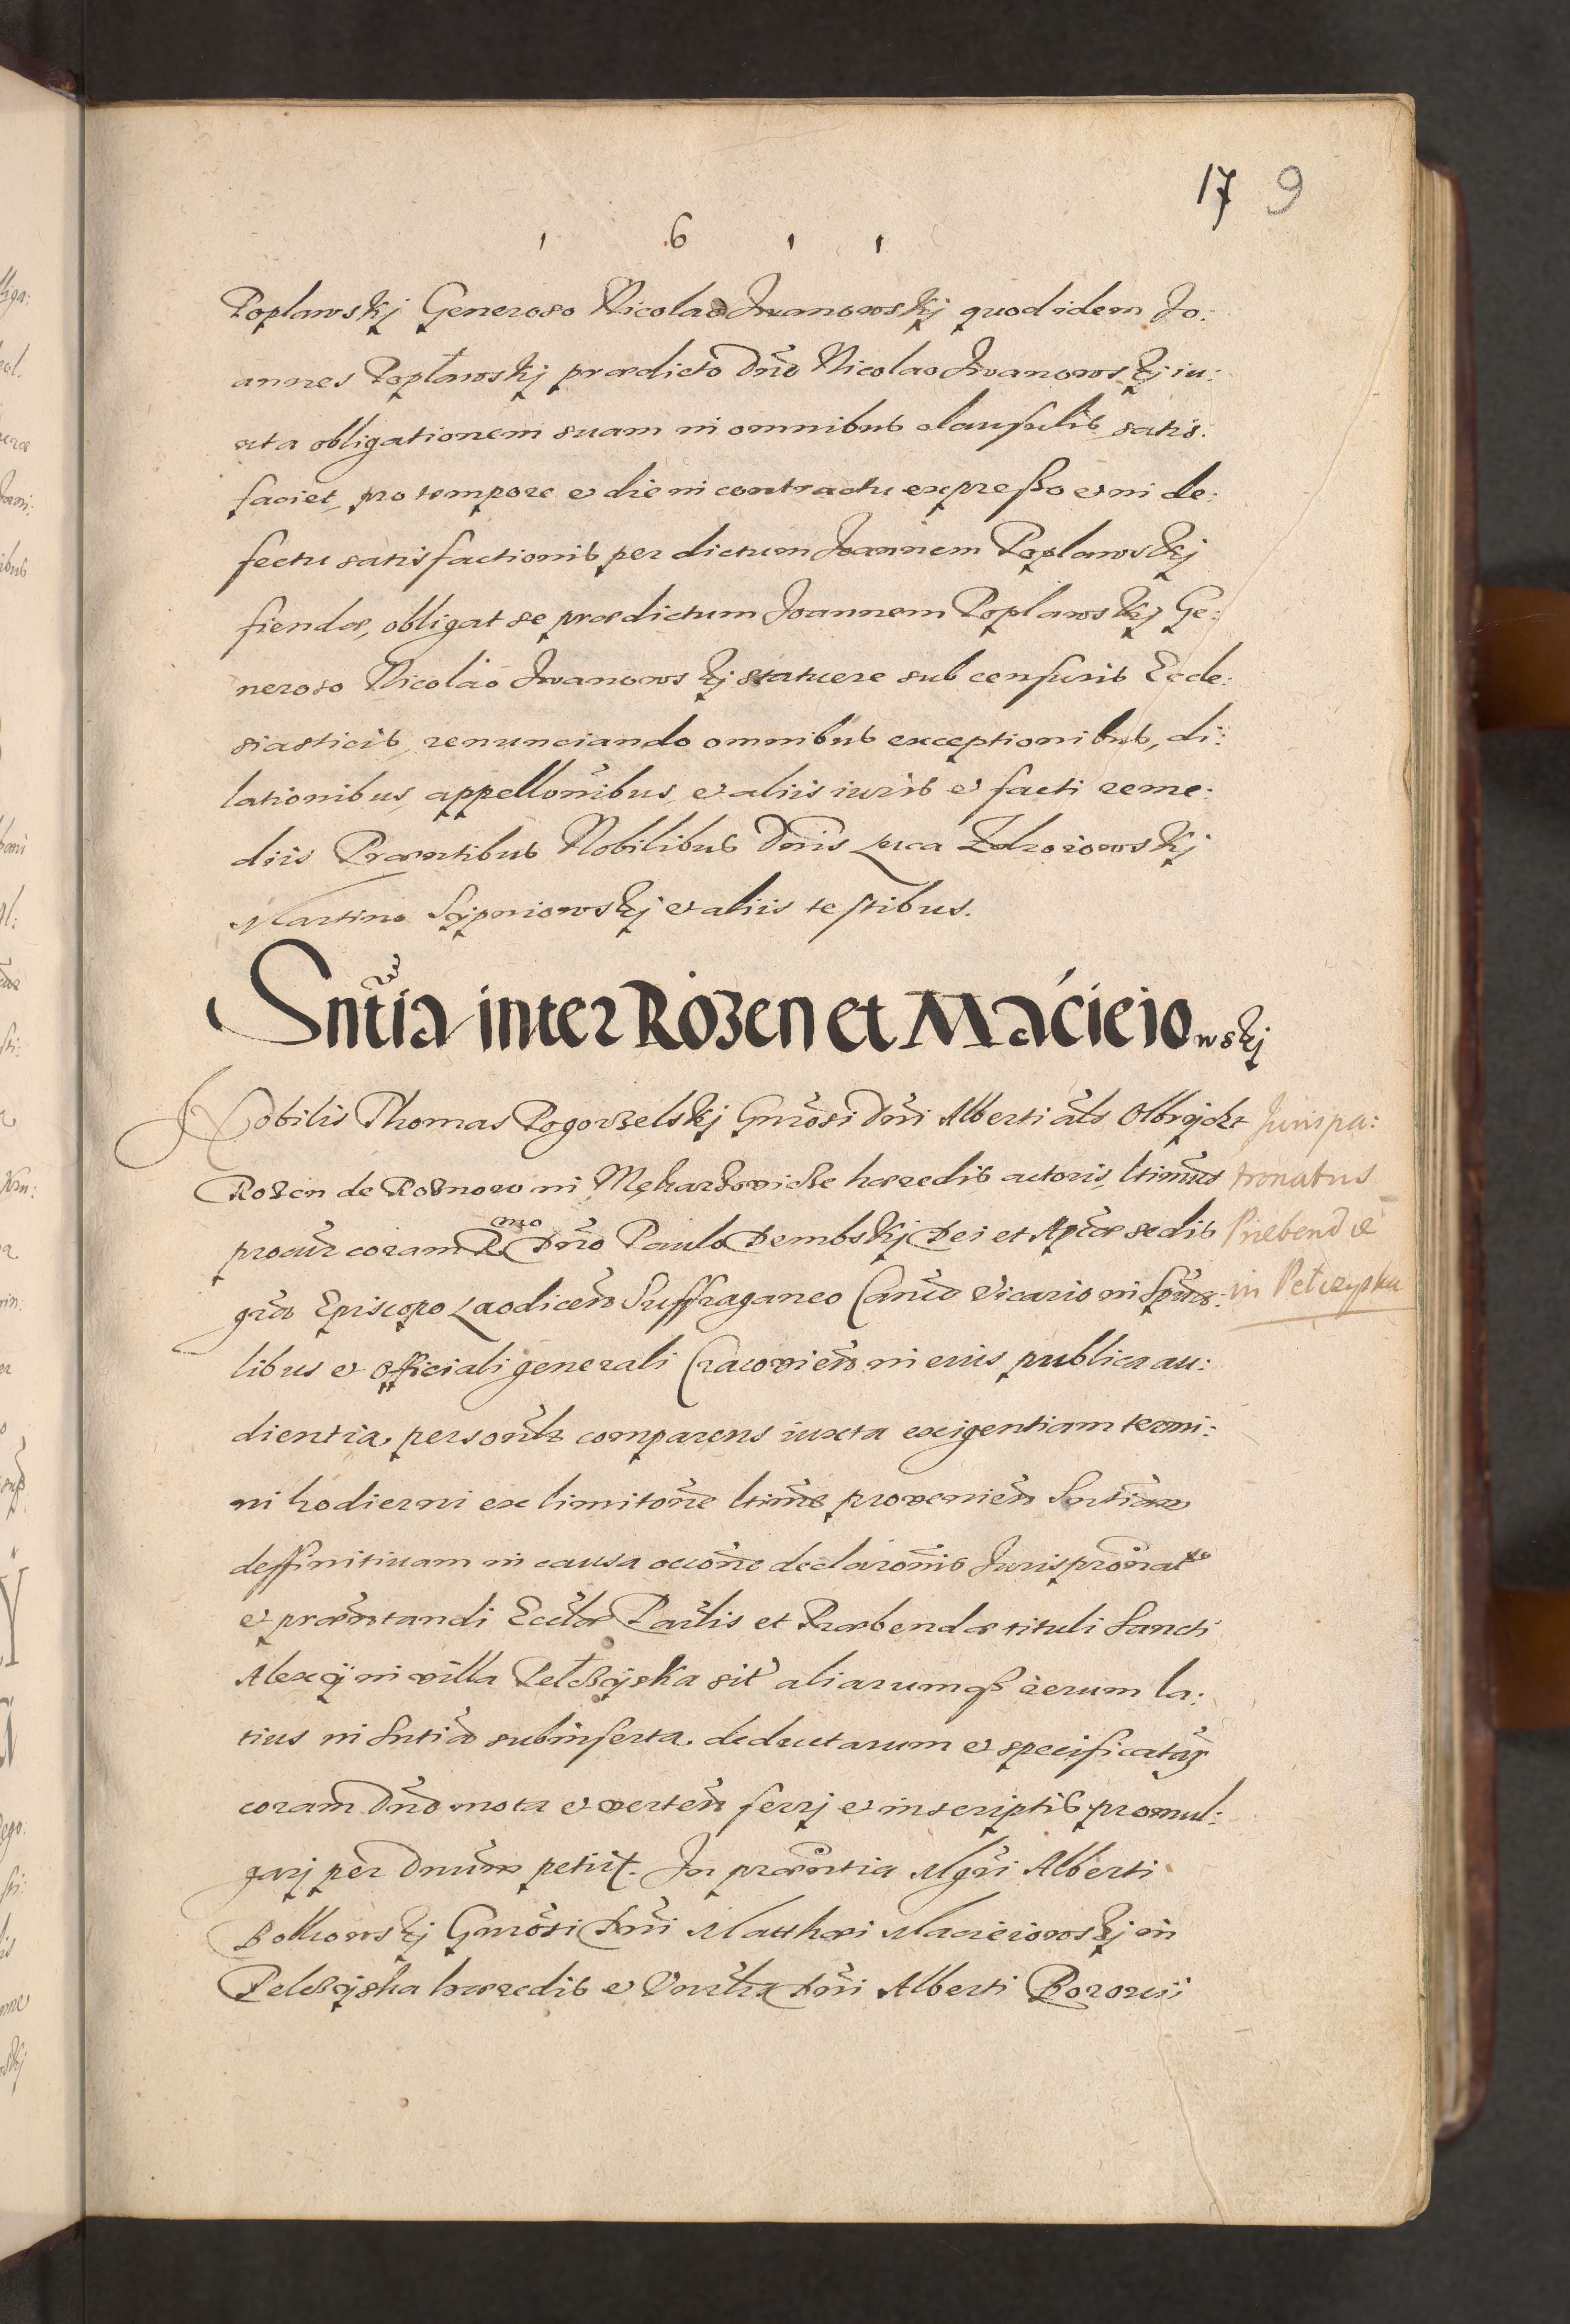 17 9
1 6 1 1
Poplawskj Generoso Nicolao Iwanowskj quod idem Jo:
annes Popławskj prædicto Dno Nicolao Iwanowskj iu:
xta obligationem suam in omnibus clausulis satis:
faciet, pro tempore et die in contractu expresso et in de:
fectu satisfactionis per dictum Joannem Poplawskj
fiendæ, obligat se prædictum Joannem Poplawskj Ge:
neroso Nicolao Iwanowskj statuere sub censuris Eccle:
siasticis, renunciando omnibus exceptionibus, di:
lationibus, appellonibus, et aliis iuris et facti reme:
diis Præntibus Nobilibus Dnis Luca Zdroiowskj
Martino Sypniowskj et aliis testibus.
Sntia inter Rozen et Macieiowskj
Nobilis Thomas Pogorzelskj Gnrosi Dni Alberti als Olbrycht
Rozen de Roznow in hæredis actoris, ltimus
procur coram R mo Dno Paulo Dembskj Dei et Aplicæ sedis
gra Episcopo Laodicen Suffraganeo Canco Vicario in Spua:
libus et Officiali generali Cracovien in eius publica au:
dientia, personlr comparens iuxta exigentiam termi:
ni hodierni ex limitone ltime provenien Sntiam
deffinitivam in causa occone declaronis Jurispronatus
et præntandi Ecclæ Parlis et Præbendæ tituli Sancti
Alexij in villa Pełczyska sit aliarumque rerum la:
tius in Sntia subinserta deductarum et specificatar
coram Dno mota et verten ferrj et in scriptis promul:
garj per Dnum petiit. In præntia Mgri Alberti
Gnrosi Dni Matthæi Macieiowskj in
Pelczyska hæredis et Dni Alberti
Jurispa:
tronatus
Præbendæ
in Pełczyska